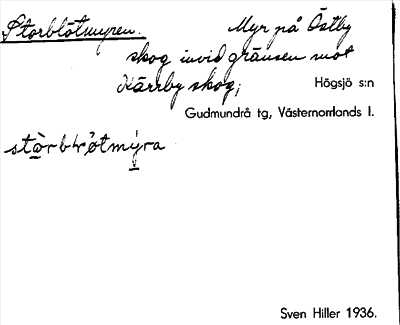 Storblötmyren. Myr på Östby
skog invid gränsen mot
Kärrby skog;
Högsjö s:n
Gudmundrå tg, Västernorrlands l.
Sven Hiller 1936.